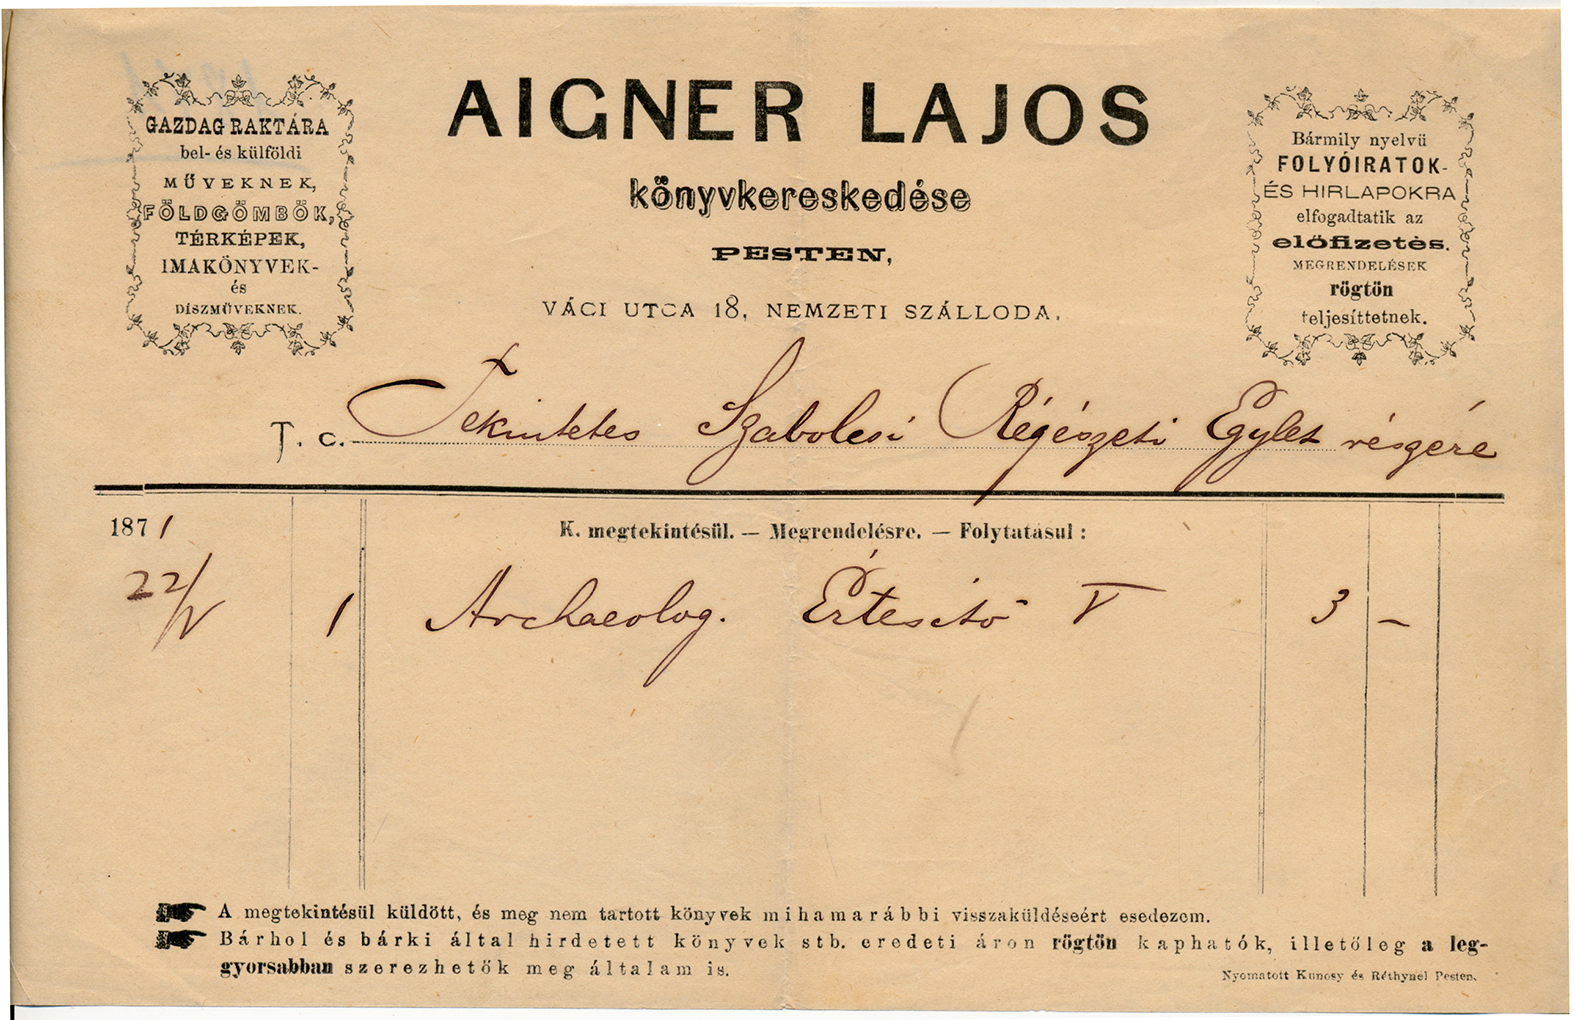 GAZDAG RAKTÁRA
bel- és külföldi
MŰVEKNEK,
FÖLDGÖMBÖK,
TÉRKÉPEK,
IMAKÖNYVEK-
és
DÍSZMŰVEKNEK.
AIGNER LAJOS
könyvkereskedése
PESTEN,
VÁCI UTCA 18, NEMZETI SZÁLLODA.
Bármily nyelvü
FOLYÓIRATOK-
ÉS HIRLAPOKRA
elfogadtatik az
előfizetés.
MEGRENDELÉSEK
rögtön
teljesíttetnek.
T. c. Tekintetes Szabolcsi Régészeti Egylet részére
1871 K. megtekintésül. — Megrendelésre. — Folytatásul :
22/V 1 Archaeolog. Értesitő V 3 —
A megtekintésül küldött, és meg nem tartott könyvek mihamarábbi visszaküldéseért esedezem.
Bárhol és bárki által hirdetett könyvek stb. eredeti áron rögtön kaphatók, illetőleg a leg-
gyorsabban szerezhetők meg általam is.
Nyomatott Kunosy és Réthynél Pesten.